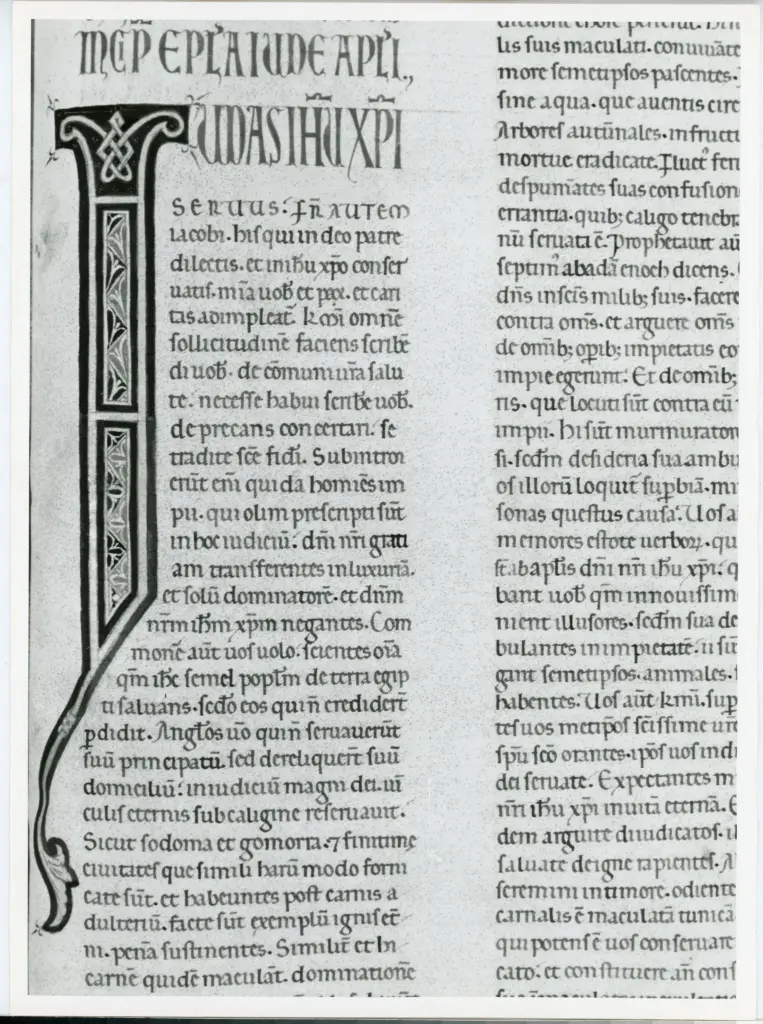 INCIP EPLA IUDE APLI.,
IUDAS IHU XPI
SERUUS. FR̄ AUTEM
iacobi. hiſ qui in deo patre
dilectis. et in ihū xp̄o conſer
uatiſ. mīa uob̄ et pax. et cari
tas adimpleat̄. kmī omnē
ſollicitudinē faciens ſcribē
di uob̄. de cōmuni ur̄a ſalu
te. neceſſe habui ſcribe uob̄.
deprecans concertari. ſe
tradite ſcē fidī. Subintroi
erūt enī quidā homiēs im
pii. qui olim preſcripti ſūt
in hoc iudiciū. dn̄i nr̄i grati
am tranſferentes in luxuriā.
et ſolū dominatorē. et dn̄m
nr̄m ihm̄ xpm̄ negantes. Com
monē aūt uoſ uolo. ſcientes oīa
qm̄ ihc̄ ſemel poplm̄ de terra egip
ti ſaluans. ſecdo eos qui n̄ credidert̄
pdidit. Anglōs uō qui n̄ ſeruauerūt
ſuū principatū. ſed derelinquert̄ ſuū
domiciliū. in iudiciū magni dei. ui
culiſ eternis ſub caligine reſeruauit.
Sicut ſodoma et gomorra. ⁊ finitime
ciuitateſ que ſimili harū modo forni
cate ſūt. et habeuntes poſt carnis a
dulteriū. facte ſūt exemplū igniſ et̄
ni. penā ſuſtinentes. Similit̄ et hi
carnē quidē maculāt. dominationē
lis ſuis maculati. conuiuāte
more ſemetipſos paſcentes.
ſine aqua. que a uentis circ
Arboreſ autūnales. infructu
mortue eradicate. Fluct᷒ fen
deſpumātes ſuas confuſion
errantia. quib; caligo tenebr
nū ſeruata ē. Prophetauit aū
ſeptim᷒ ab adā enoch dicens.
dn̄s in ſcīs milib; ſuis. facere
contra om̄s. et arguere om̄s
de omīb; opib; impietatis eo
impie egerunt. Et de omīb;
ris. que locuti ſūt contra eū
impii. hi ſūt murmurator
ſi. ſecdm̄ deſideria ſua ambu
oſ illorū loquit̄ ſupbiā. mi
ſonas queſtus cauſa. Uoſ a
memores eſtote uerboꝝ. qu
ſt̄ ab aplīs dn̄i nr̄i ihū xp̄i. q
bant uob̄ qm̄ in nouiſſim
nient illuſores. ſecdm̄ ſua de
bulantes in impietatē. ii ſūt
gant ſemetipſos. animales.
habentes. Uoſ aūt kmī. ſup
teſ uos metipoſ ſcīſſime ur̄e
ſpū ſcō orantes. ipōſ uoſ in di
dei ſeruate. Expectantes m
nr̄i ihū xp̄i in uitā eternā. E
dem arguite diiudicatoſ. il
ſaluate de igne rapienteſ. A
ſeremini in timore. odiente
carnalis ē maculatā tunicā
qui potenſ ē uoſ conſeruare
cato. et conſtituere an̄ conſ